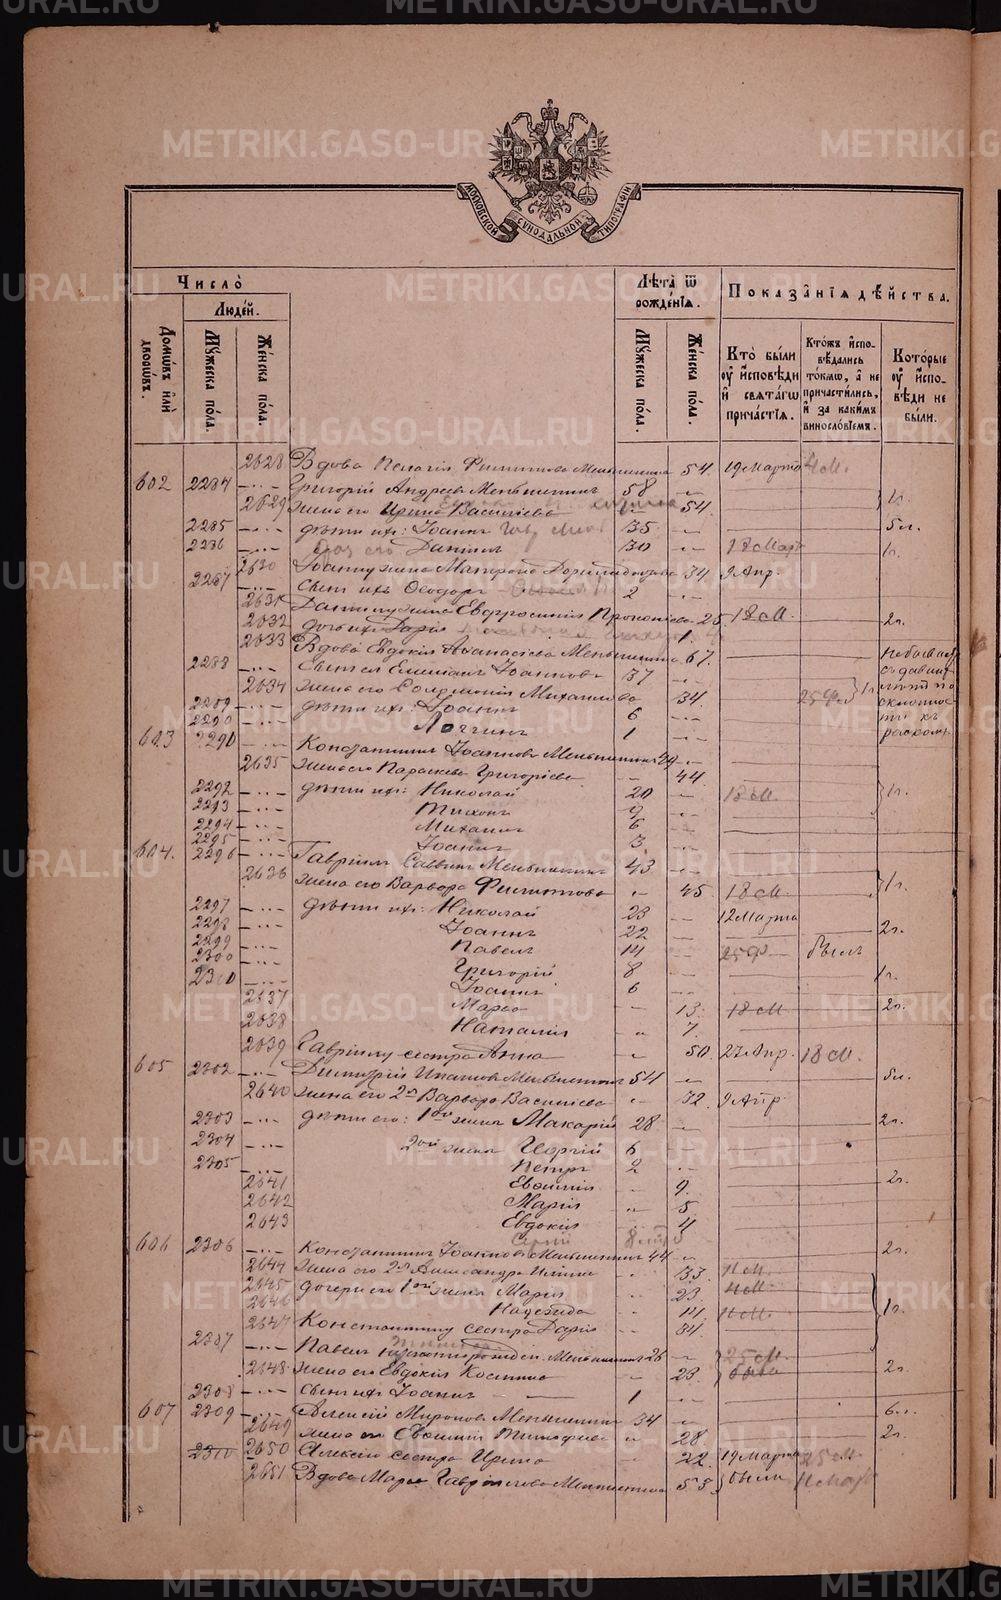 METRIKI.GASO-URAL.RU
МОСКОВСКОЙ СѴНОДАЛЬНОЙ ТИПОГРАФІИ
Число̀
Людей.
Домѡвъ и҆лѝ дворѡвъ.
Мꙋжеска по́ла.
Же́нска по́ла.
Лѣта̀ ѿ рожде́нїѧ.
Мꙋжеска по́ла.
Же́нска по́ла.
Показа̑нїѧ дѣ́йства.
Кто̀ бы́ли оу҆ и҆сповѣди и҆ свѧта́гѡ причастїѧ.
Кто́жъ и҆спо- вѣдались то́кмѡ, а҆ не причасти́лись, и҆ за каки́мъ винослові́емъ.
Кото́рые оу҆ и҆спо- вѣди не бы́ли.
2628 Вдова Пелагія Филиппова Меньшенина 54. 19 Марта 4 М.
602 2284 Григорій Андреевъ Меньшенинъ 58
2629 жена его Ирина Василіева 54. 1 г.
2285 дѣти ихъ: Іоаннъ 35 5 л.
2286 Даніилъ 30 18 Март 1 г.
2630 Іоанну жена Матрона 34 9 Апр.
2287 сынъ ихъ Ѳеодоръ 2
2631 Даніилу жена Евфросинія Прокопіева 25. 18 М.
2632 дочь ихъ Дарія 1. 2 г.
2633 Вдова Евдокія Аѳанасіева Меньшенина 67.
2288 сынъ ея Емиліанъ Іоанновъ 37
2634 жена его Соломонія Михаилова 34. 25 Ф. 1 г.
2289 дѣти ихъ: Іоаннъ 6
2290 Логгинъ 1
603 2290 Константинъ Іоанновъ Меньшенинъ 44
2635 жена его Параскева Григоріева 44.
2292 дѣти ихъ: Николай 20 18 М. 1 г.
2293 Тихонъ 9
2294 Михаилъ 6
2295 Іоаннъ 3
604. 2296 Гавріилъ Саввинъ Меньшенинъ 43
2636 жена его Варвара Филиппова 45 18 М. 1 г.
2297 дѣти ихъ: Николай 23 12 Марта
2298 Іоаннъ 22 2 г.
2299 Павелъ 14 25 Ф былъ
2300 Григорій 8 1 г.
2310 Іоаннъ 6
2637 Марѳа 13. 18 М 2 г.
2638 Наталія 7.
2639 Гавріилу сестра Анна 50. 27 Апр. 18 М.
605 2302 Димитрій Ипатовъ Меньшенинъ 54 5 л.
2640 жена его 2я Варвара Василіева 32. 9 Апр
2303 дѣти его: 1ой жены Макарій 28 2 г.
2304 2ой жены Георгій 6
2305 Петръ 2
2641 Евѳимія 9. 2 г.
2642 Марія 5
2643 Евдокія 4
606 2306 Константинъ Іоанновъ Меньшенинъ 44 2 г.
2644 жена его 2я Александра 33. 11 М.
2645 дочери его 1ой жены Марія 23 4 М.
2646 Надежда 14. 11 М. 1 г.
2647 Константину сестра Дарія 34.
2307 Павелъ Меньшенинъ 26 25 М.
2648 жена его Евдокія Косьмина 23. были 2 г.
2308 сынъ ихъ Іоаннъ 1
607 2309 Алексій Мироновъ Меньшенинъ 34 6 л.
2649 жена его Евѳимія Тимоѳеева 28. 2 г.
2310 2650 Алексію сестра Ирина 22. 19 Марта 25 М
2651 Вдова Марѳа Гавріилова Меньшенина 53. были 11 Март